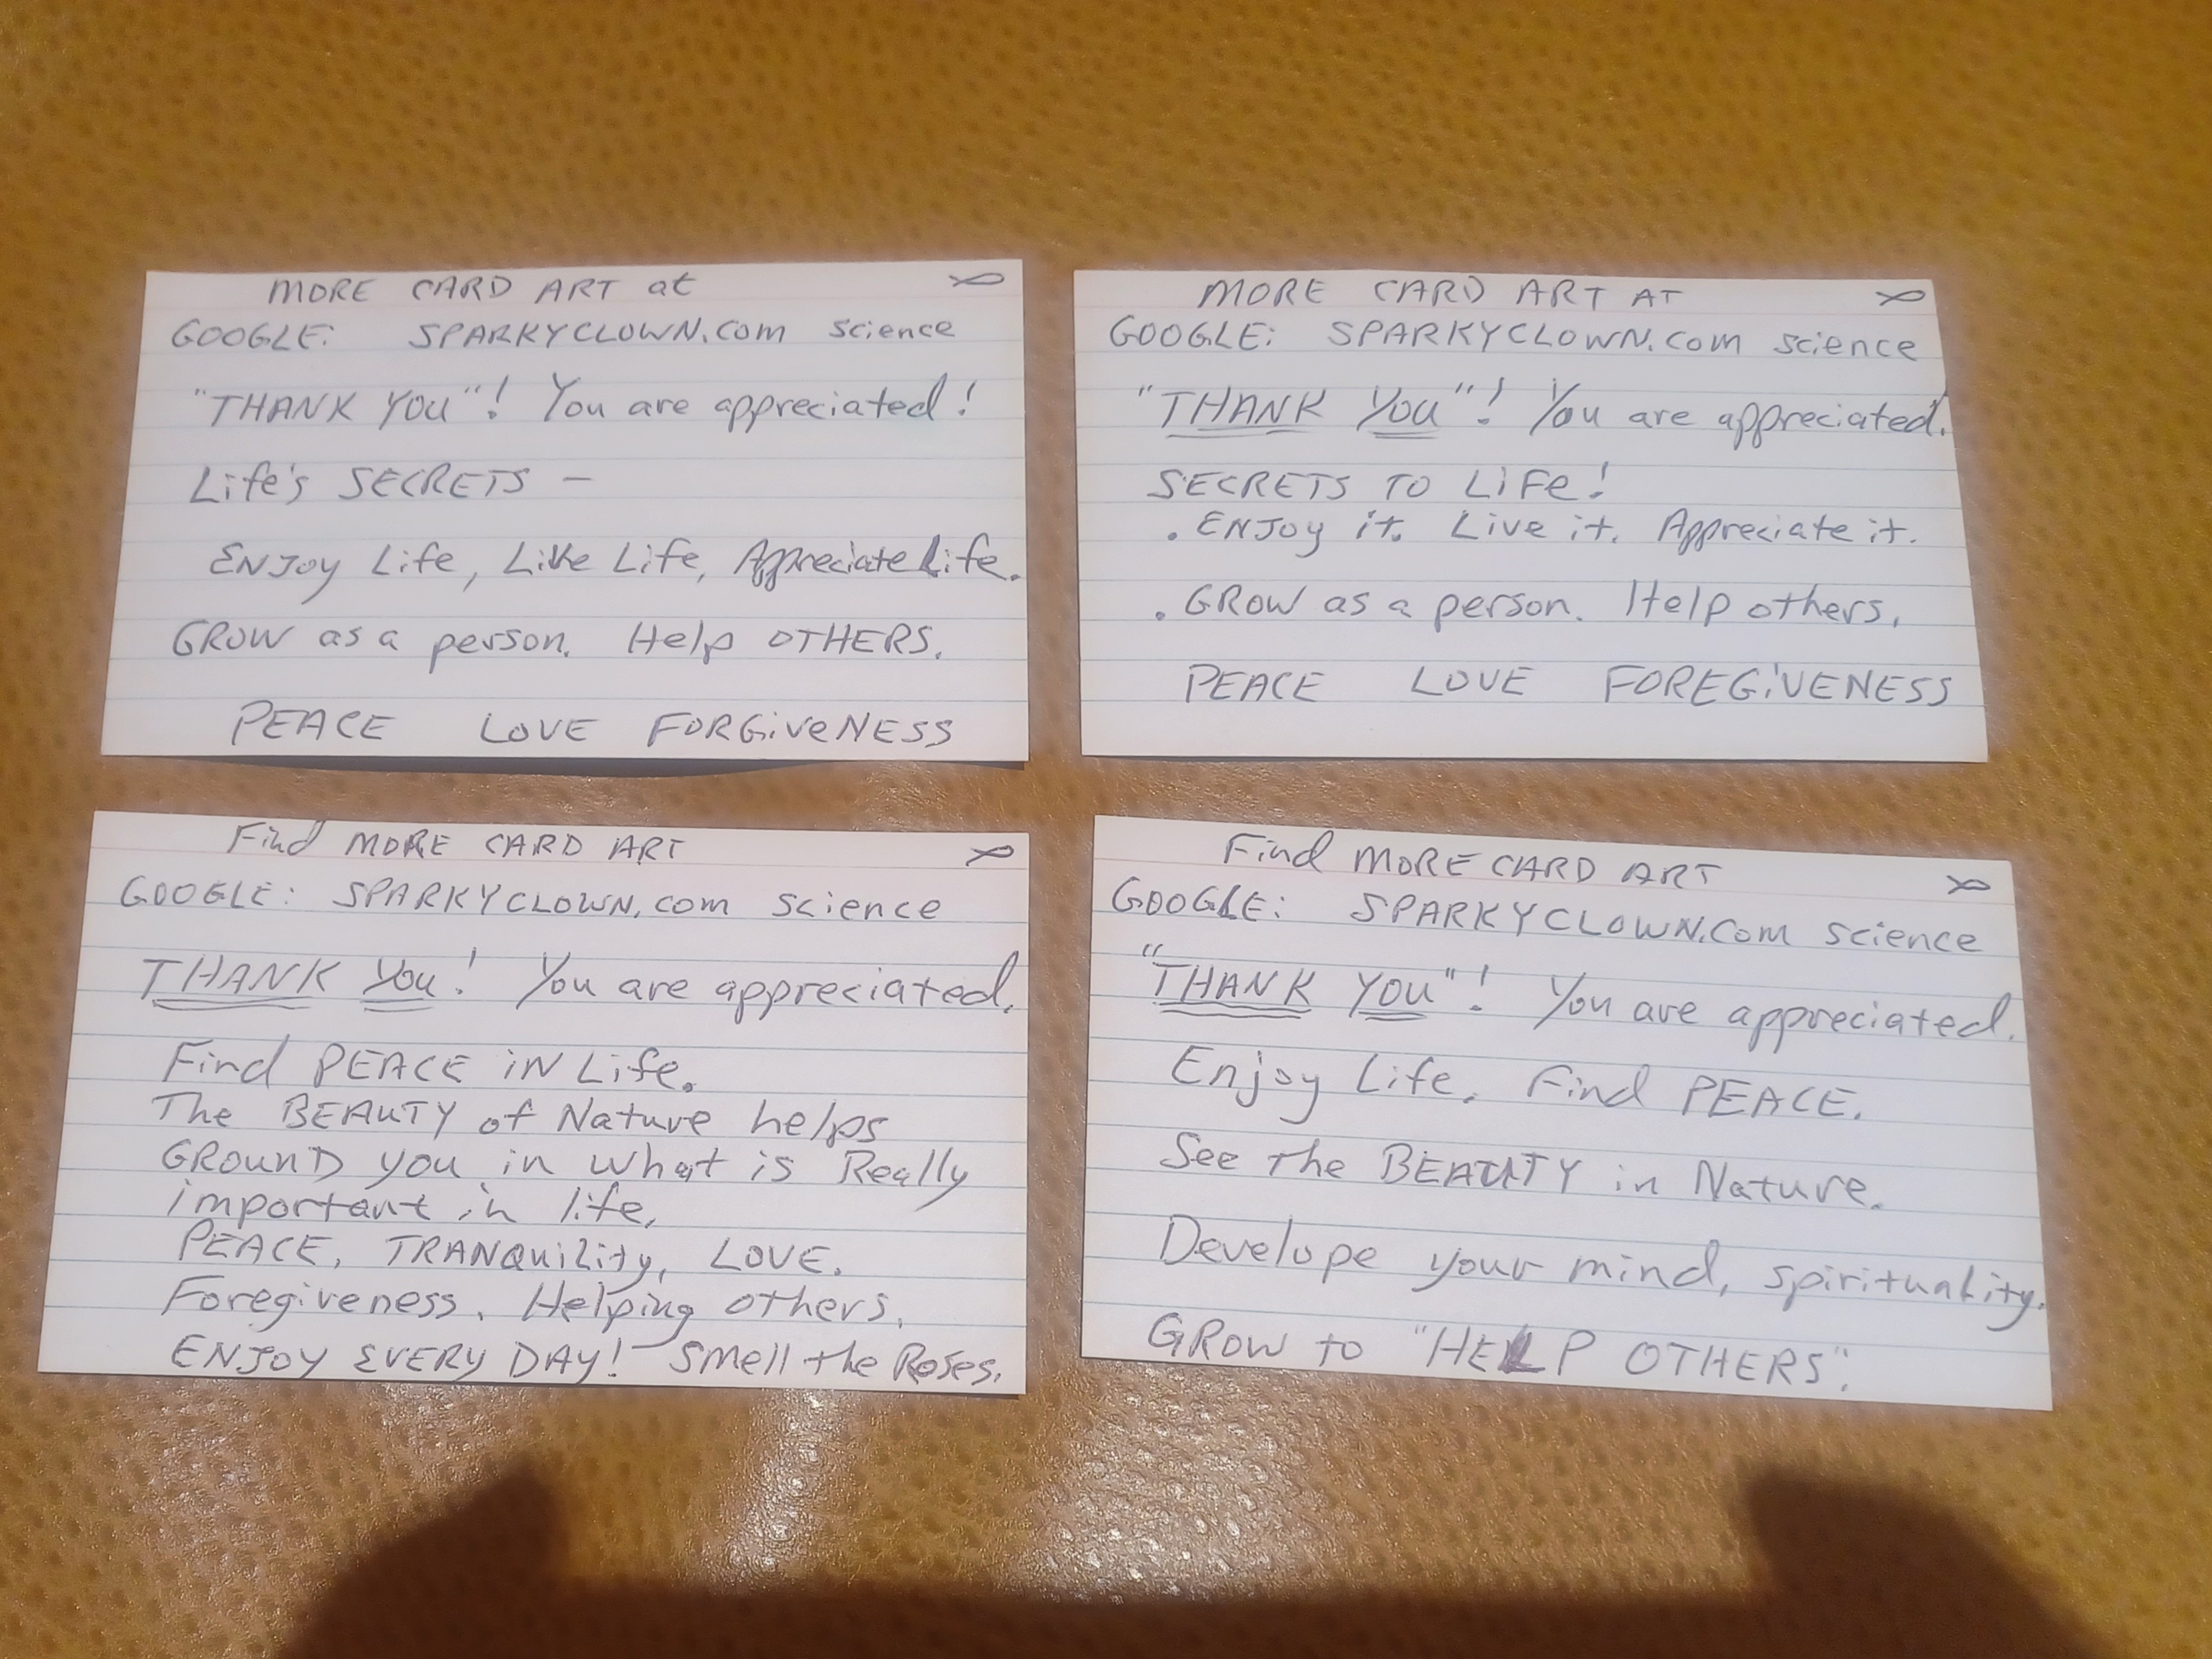 MORE CARD ART at
GOOGLE: SPARKYCLOWN.COM science
"THANK YOU"! You are appreciated!
Life's SECRETS —
ENJOY Life, Like Life, Appreciate Life.
GROW as a person. Help OTHERS.
PEACE LOVE FORGiveNESS
MORE CARD ART AT
GOOGLE: SPARKYCLOWN.COM science
"THANK YOU"! You are appreciated.
SECRETS TO LiFe!
. ENJOY it. Live it. Appreciate it.
. GROW as a person. Help others.
PEACE LOVE FOREGiVENESS
Find MORE CARD ART
GOOGLE: SPARKYCLOWN.COM science
THANK You! You are appreciated.
Find PEACE iN Life.
The BEAUTY of Nature helps
GROUND you in what is Really
important in life.
PEACE, TRANQuiLity, LOVE.
Foregiveness. Helping others.
ENJOY EVERY DAY! Smell the Roses.
Find MORE CARD ART
GOOGLE: SPARKYCLOWN.COM science
"THANK YOU"! You are appreciated.
Enjoy Life. Find PEACE.
See the BEAUTY in Nature.
Develope your mind, spirituality.
GROW to "HELP OTHERS".